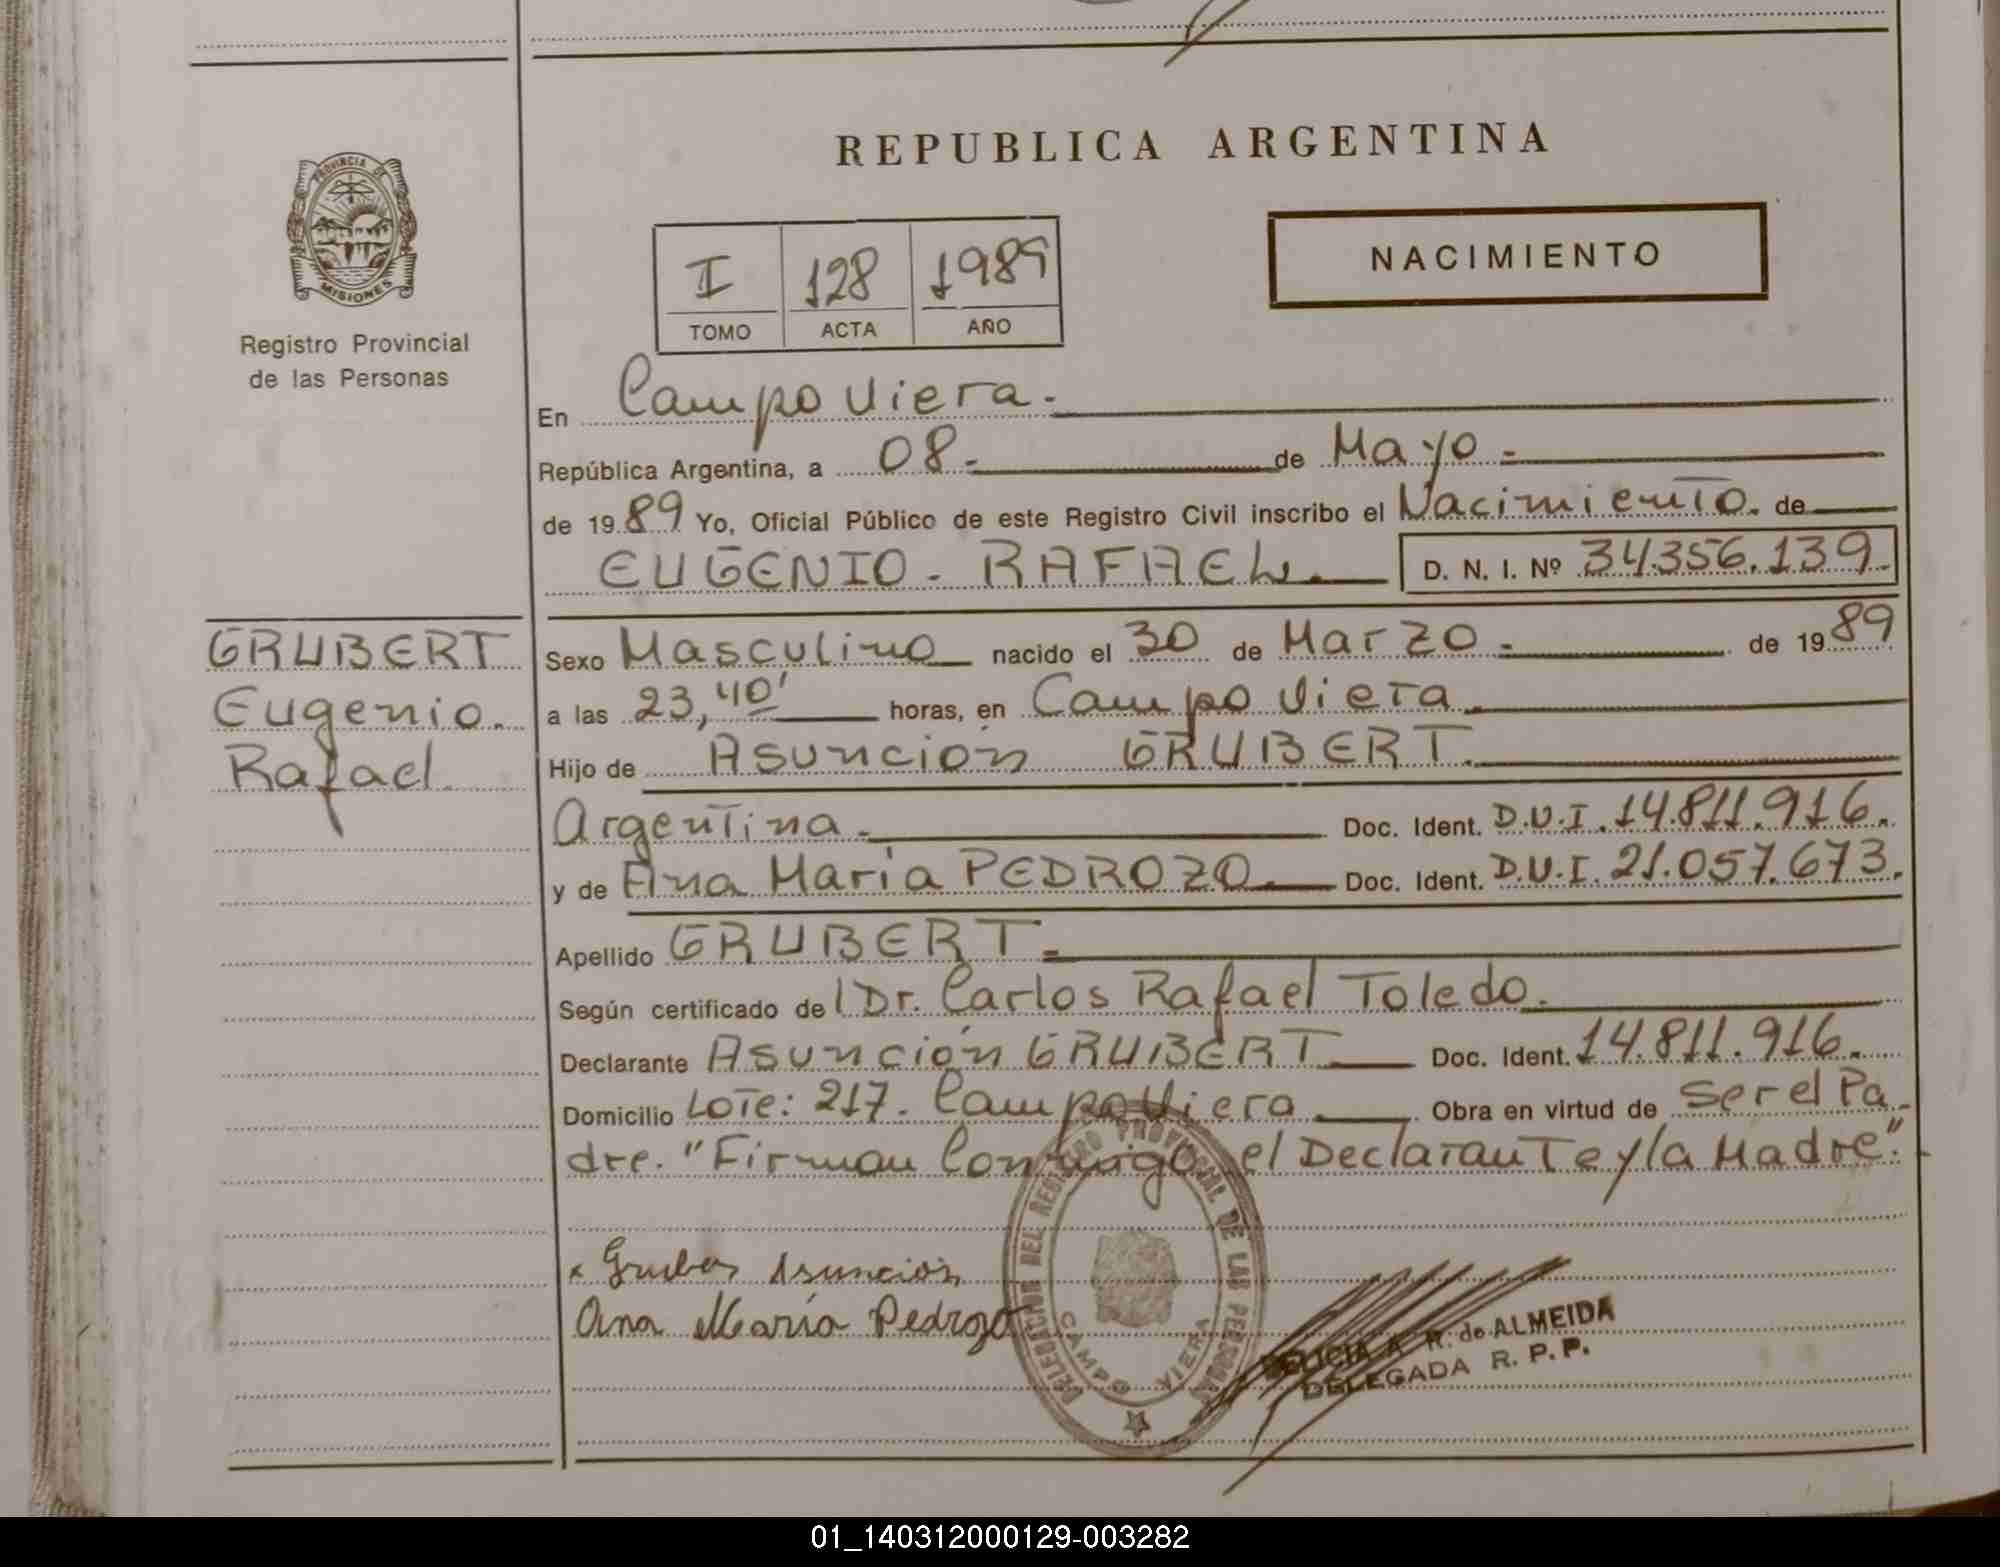 REPUBLICA ARGENTINA
PROVINCIA DE
MISIONES
Registro Provincial
de las Personas
I 128 1989
TOMO ACTA AÑO
NACIMIENTO
En Campo Viera.
República Argentina, a 08 de Mayo
de 1989 Yo, Oficial Público de este Registro Civil inscribo el Nacimiento. de
EUGENIO - RAFAEL. D. N. I. Nº 34.356.139.
GRUBERT
Eugenio.
Rafael.
Sexo Masculino nacido el 30 de Marzo de 1989
a las 23,40' horas, en Campo Viera.
Hijo de Asunción GRUBERT.
Argentina. Doc. Ident. D.U.I. 14.811.916.
y de Ana María PEDROZO. Doc. Ident. D.U.I. 21.057.673.
Apellido GRUBERT.
Según certificado del Dr. Carlos Rafael Toledo.
Declarante Asunción GRUBERT Doc. Ident. 14.811.916.
Domicilio Lote: 217. Campo Viera. Obra en virtud de Ser el Pa-
dre. "Firman Conmigo el Declarante y la Madre".
x Asunción
Ana María Pedrozo
DELEGACION DEL REGISTRO PROVINCIAL DE LAS PERSONAS
CAMPO VIERA
A. R. de ALMEIDA
DELEGADA R. P. P.
01_140312000129-003282